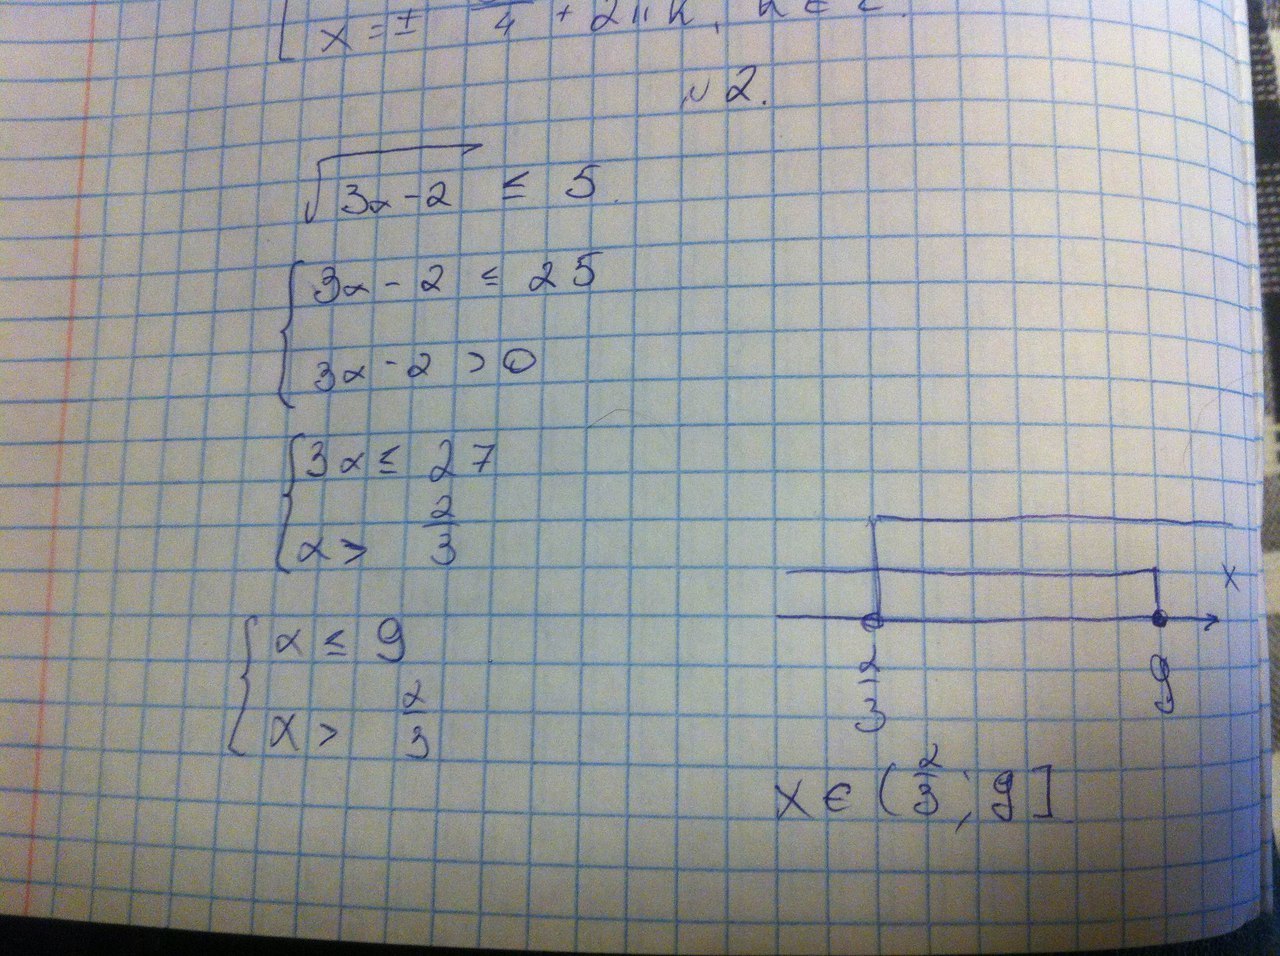 x = ± /4 + 2πk, k ∈ Z.
№ 2.
√3x - 2 ≤ 5.
3x - 2 ≤ 25
3x - 2 > 0
3x ≤ 27
x > 2/3
x ≤ 9
x > 2/3
x
2/3 9
x ∈ (2/3; 9]